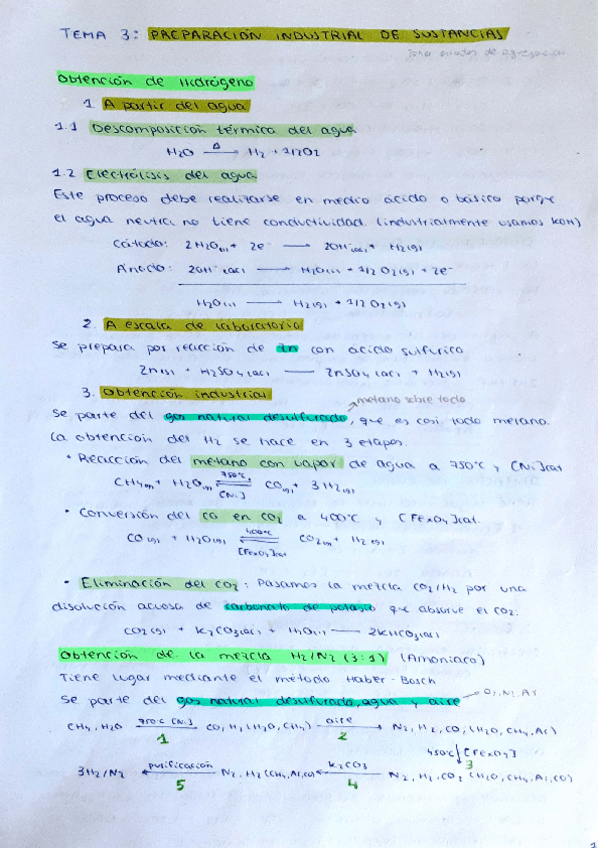 TEMA 3: PREPARACIÓN INDUSTRIAL DE SUSTANCIAS
Obtención de Hidrógeno
1. A partir del agua
1.1 Descomposición térmica del agua
H₂O —Δ→ H₂ + 1/2O₂
1.2 Electrólisis del agua
Este proceso debe realizarse en medio ácido o básico porque
el agua neutra no tiene conductividad. (industrialmente usamos KOH)
Cátodo: 2H₂O(l) + 2e⁻ → 2OH⁻(ac) + H₂(g)
Ánodo: 2OH⁻(ac) → H₂O(l) + 1/2 O₂(g) + 2e⁻
H₂O(l) → H₂(g) + 1/2 O₂(g)
2. A escala de laboratorio
Se prepara por reacción de Zn con ácido sulfúrico
Zn(s) + H₂SO₄(ac) → ZnSO₄(ac) + H₂(g)
3. Obtención industrial
metano sobre todo
Se parte del gas natural desulfurado, que es casi todo metano.
La obtención del H₂ se hace en 3 etapas.
• Reacción del metano con vapor de agua a 750°C y [Ni]cat
CH₄(g) + H₂O(g) ⇌ CO(g) + 3H₂(g)
750°C
[Ni]
• Conversión del CO en CO₂ a 400°C y [FexOy]cat.
CO(g) + H₂O(g) ⇌ CO₂(g) + H₂(g)
400°C
[FexOy]cat
• Eliminación del CO₂: Pasamos la mezcla CO₂/H₂ por una
disolución acuosa de carbonato de potasio que absorve el CO₂.
CO₂(g) + K₂CO₃(ac) + H₂O(l) → 2KHCO₃(ac)
Obtención de la mezcla H₂/N₂ (3:1) (Amoniaco)
Tiene lugar mediante el método Haber-Bosch
Se parte del gas natural desulfurado, agua y aire → O₂, N₂, Ar
CH₄, H₂O —750°C [Ni]→ CO, H₂ (H₂O, CH₄) —aire→ N₂, H₂, CO, (H₂O, CH₄, Ar)
1 2
450°C ↓ [FexOy]
3
3H₂/N₂ ←purificación— N₂, H₂ (CH₄, Ar, CO) ←K₂CO₃— N₂, H₂, CO₂ (H₂O, CH₄, Ar, CO)
5 4
1